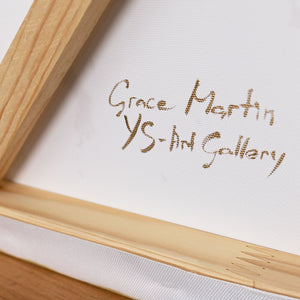 Grace Martin
YS-Art Gallery